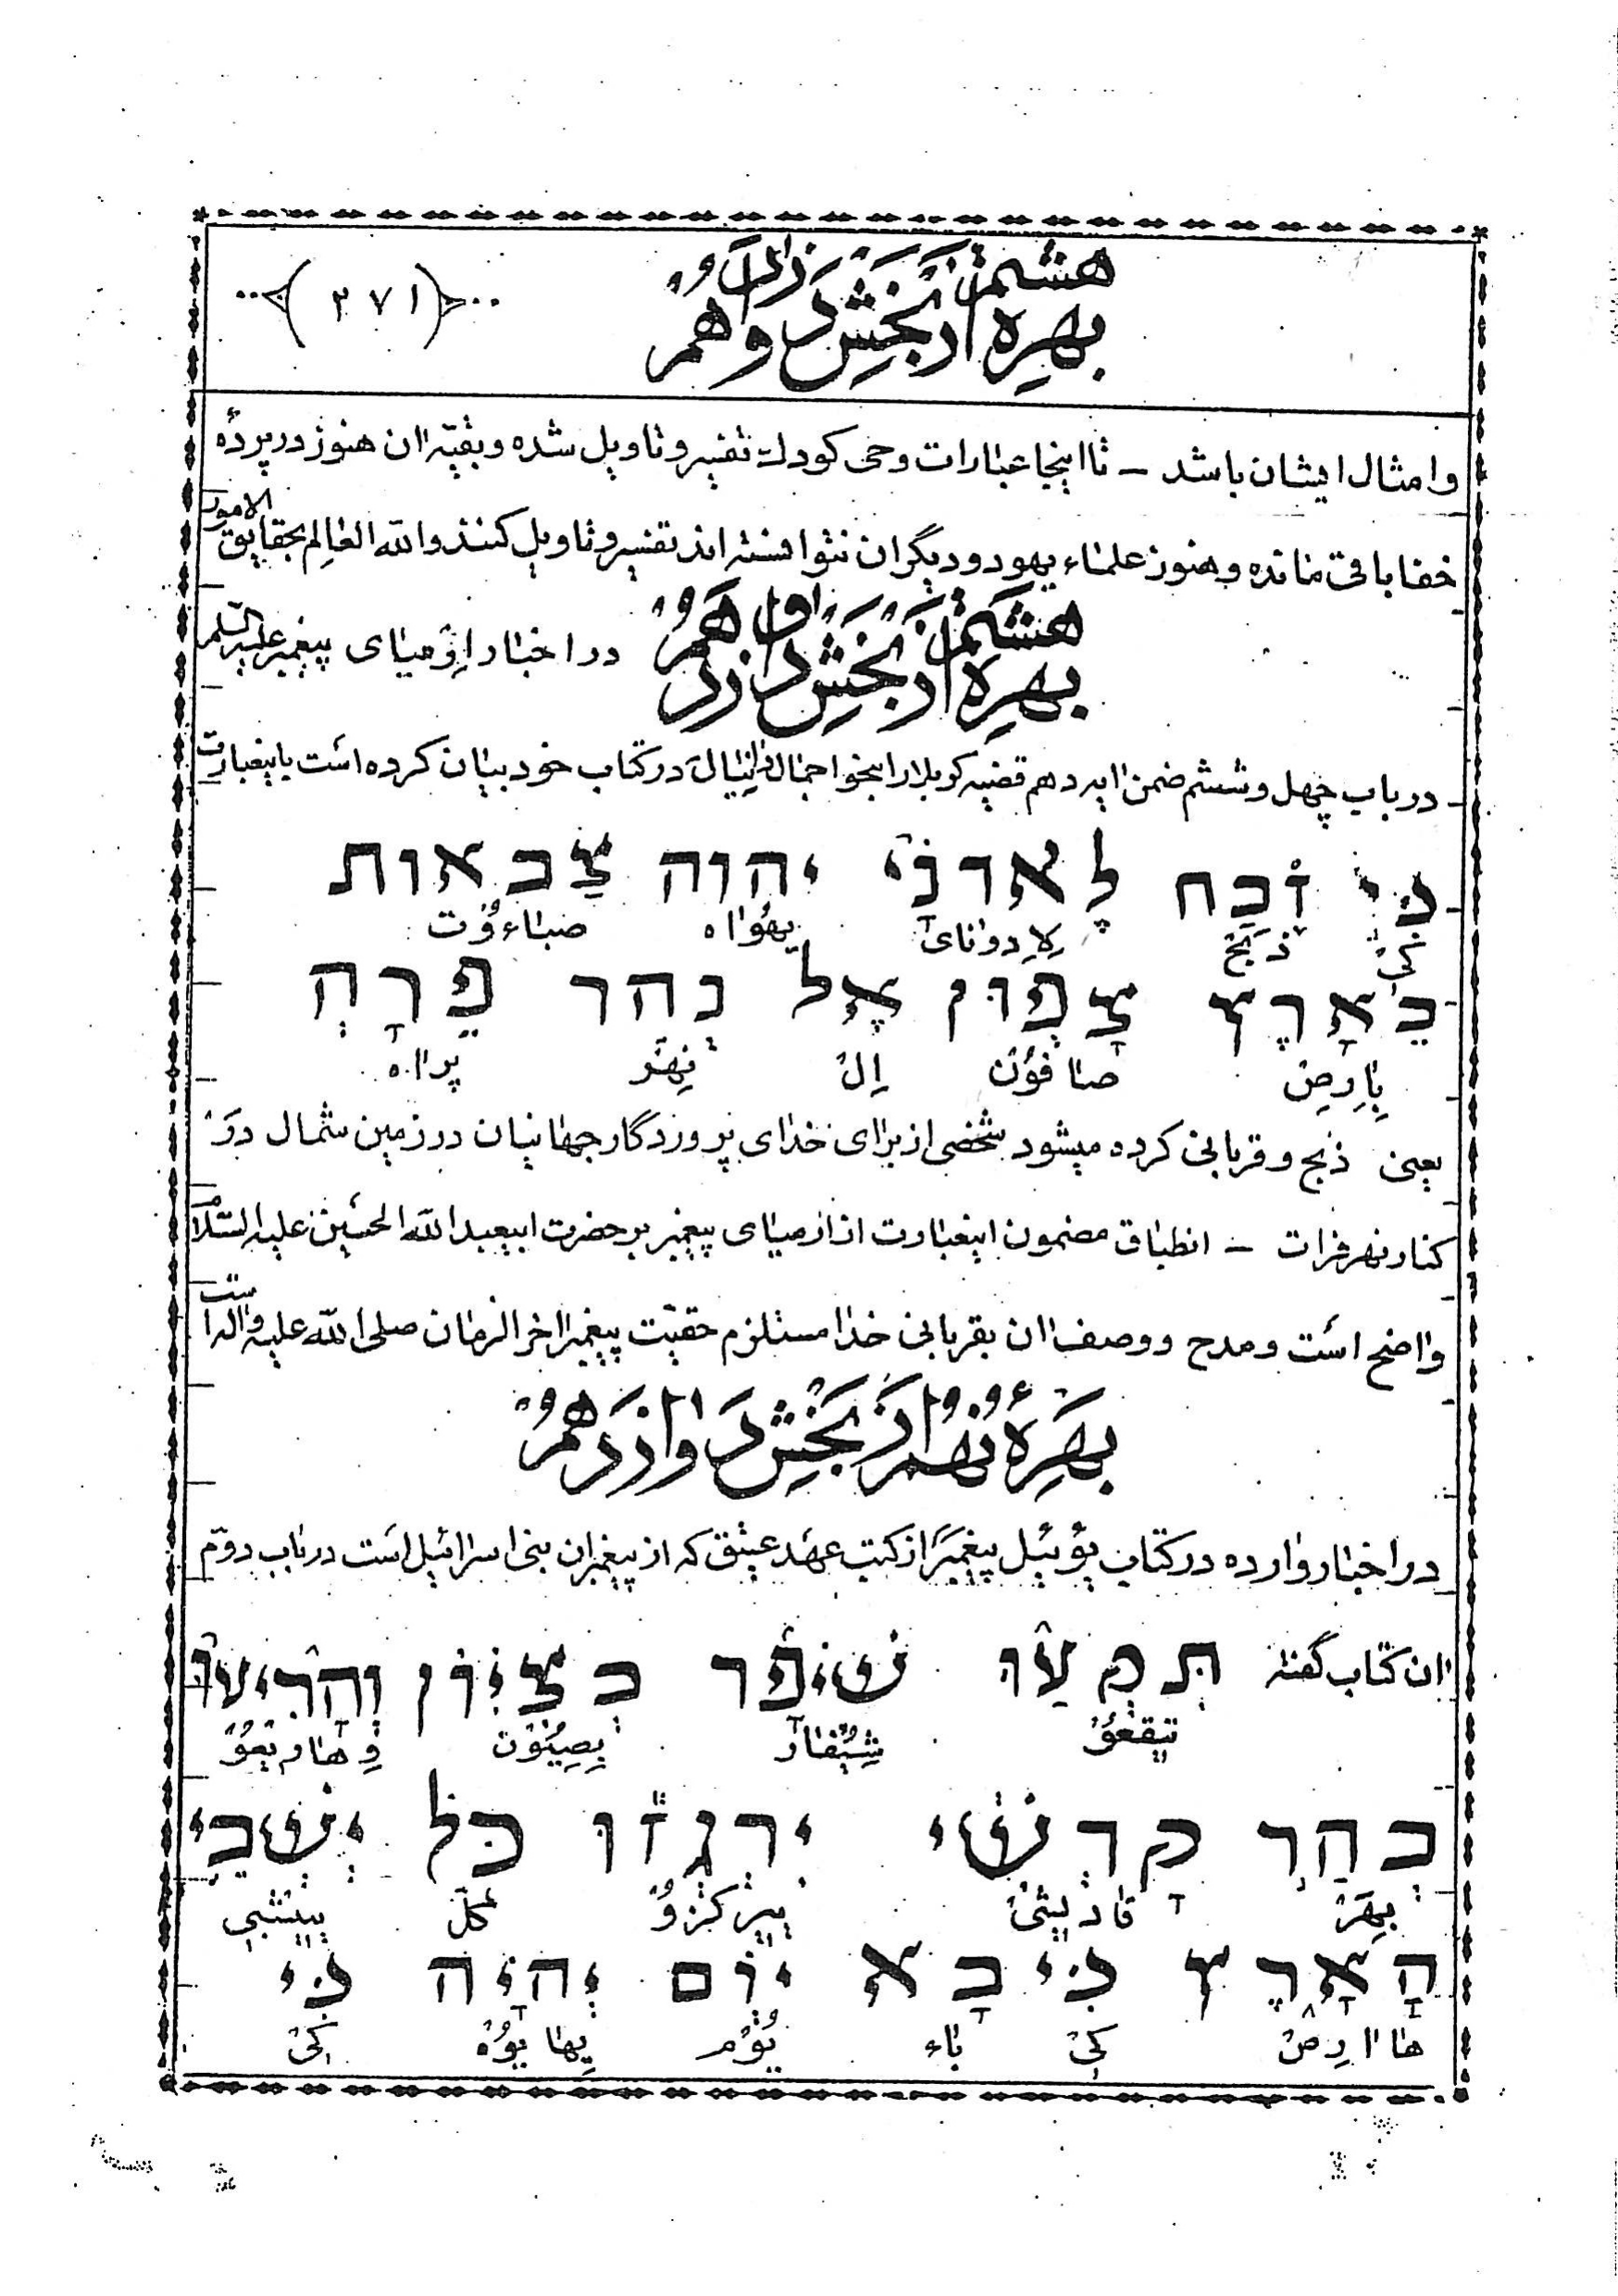 بهره هشتم از بخش دوازدهم
(۲۷۱)
وامثال ایشان باشد – تا اینجا عبارات وحی کودک تفسیر و تاویل شده و بقیّه ان هنوز در پردهٔ
خفا باقی مانده و هنوز علماء یهود و دیگران نتوانسته اند تفسیر و تاویل کنند والله العالِم بحقایق الامور
بهره هشتم از بخش دوازدهم در اخبار ارمیای پیغمبر علیه السّلم
در باب چهل و ششم ضمن ایه دهم قضیه کربلا را بنحو اجمال دانیال در کتاب خود بیان کرده است باینعبارت
כִּי זֶבַח לַאדֹנָי יהוה צְבָאוֹת
کِیْ ذِبَحْ لِادوانای یِهُوااه صباءوُت
בְּאֶרֶץ צָפוֹן אֶל נְהַר פְּרָת
بِارِصْ صافوُنْ اِلْ نِهَرْ پرااه
یعنی ذبح و قربانی کرده میشود شخصی از برای خدای پروردگار جهانیان در زمین شمال دَرْ
کنار نهر فرات – انطباق مضمون اینعبارت از ارمیای پیغمبر بر حضرت ابیعبدالله الحسین علیه السّلام
واضح است و مدح و وصف ان بقربانی خدا مستلزم حقیّت پیغمبر اخر الزمان صلی الله علیه واله است
بهرهٔ نهم از بخش دوازدهم
در اخبار وارده در کتاب یوُئیل پیغمبر از کتب عهد عتیق که از پیغمبران بنی اسرائیل است در باب دوّم
ان کتاب گفته תִּקְעוּ שׁוֹפָר בְּצִיּוֹן וְהָרִיעוּ
تیقعوُ شِیُفار بِصِیُوُن وِهاریعوُ
בְּהַר קָדְשִׁי יִרְגְּזוּ כֹּל יֹשְׁבֵי
بِهَرْ قادیشیْ ییرکزوُ کلّ ییشبی
הָאָרֶץ כִּי בָא יוֹם יְהוָה כִּי
هاارِصْ کِیْ باء یُوْم یِهایوُه کِیْ